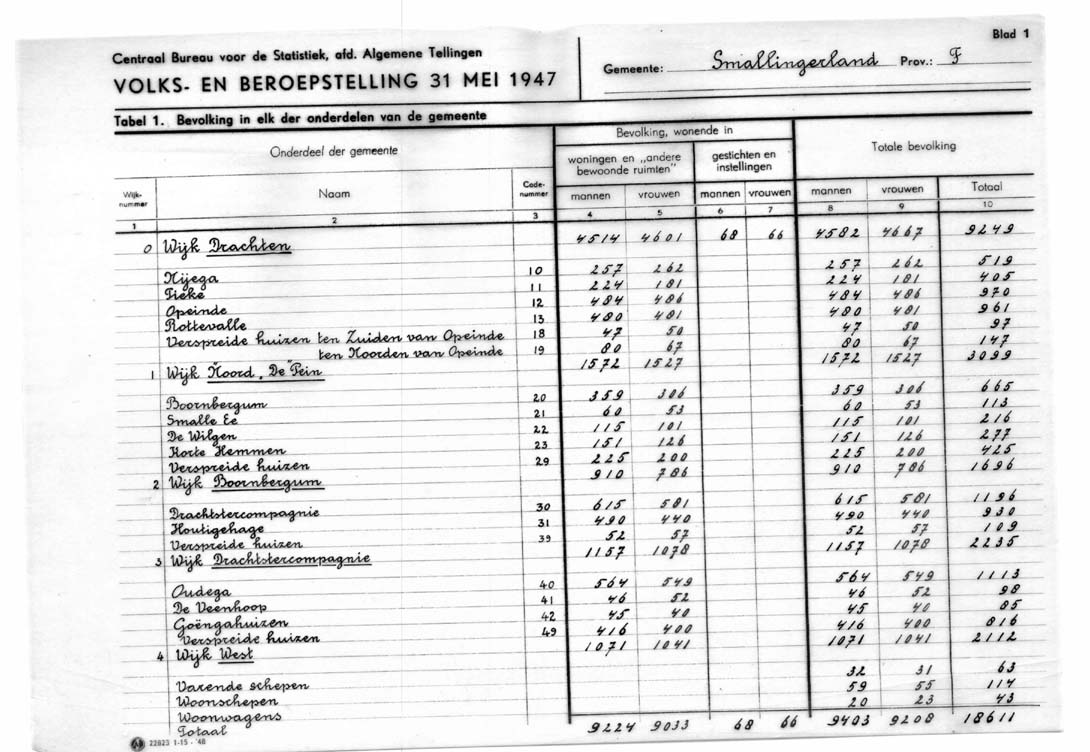 Blad 1
Centraal Bureau voor de Statistiek, afd. Algemene Tellingen
VOLKS- EN BEROEPSTELLING 31 MEI 1947
Gemeente: Smallingerland Prov.: F
Tabel 1. Bevolking in elk der onderdelen van de gemeente
Onderdeel der gemeente
Bevolking, wonende in
Totale bevolking
woningen en „andere bewoonde ruimten”
gestichten en instellingen
Wijk-nummer Naam Code-nummer mannen vrouwen mannen vrouwen mannen vrouwen Totaal
1 2 3 4 5 6 7 8 9 10
0 Wijk Drachten 4514 4601 68 66 4582 4667 9249
Nijega 10 257 262 257 262 519
Tieke 11 224 181 224 181 405
Opeinde 12 484 486 484 486 970
Rottevalle 13 480 481 480 481 961
Verspreide huizen ten Zuiden van Opeinde 18 47 50 47 50 97
ten Noorden van Opeinde 19 80 67 80 67 147
1 Wijk Noord „De Pein" 1572 1527 1572 1527 3099
Boornbergum 20 359 306 359 306 665
Smalle Ee 21 60 53 60 53 113
De Wilgen 22 115 101 115 101 216
Korte Hemmen 23 151 126 151 126 277
Verspreide huizen 29 225 200 225 200 425
2 Wijk Boornbergum 910 786 910 786 1696
Drachtstercompagnie 30 615 581 615 581 1196
Houtigehage 31 490 440 490 440 930
Verspreide huizen 39 52 57 52 57 109
3 Wijk Drachtstercompagnie 1157 1078 1157 1078 2235
Oudega 40 564 549 564 549 1113
De Veenhoop 41 46 52 46 52 98
Goëngahuizen 42 45 40 45 40 85
Verspreide huizen 49 416 400 416 400 816
4 Wijk West 1071 1041 1071 1041 2112
Varende schepen 32 31 63
Woonschepen 59 55 114
Woonwagens 20 23 43
Totaal 9224 9033 68 66 9403 9208 18611
22823 1-15 - '48